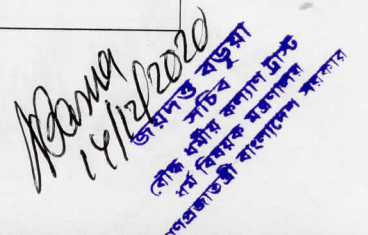 14/12/2020
জয়দত্ত বড়ুয়া
সচিব
বৌদ্ধ ধর্মীয় কল্যাণ ট্রাস্ট
ধর্ম বিষয়ক মন্ত্রণালয়
গণপ্রজাতন্ত্রী বাংলাদেশ সরকার